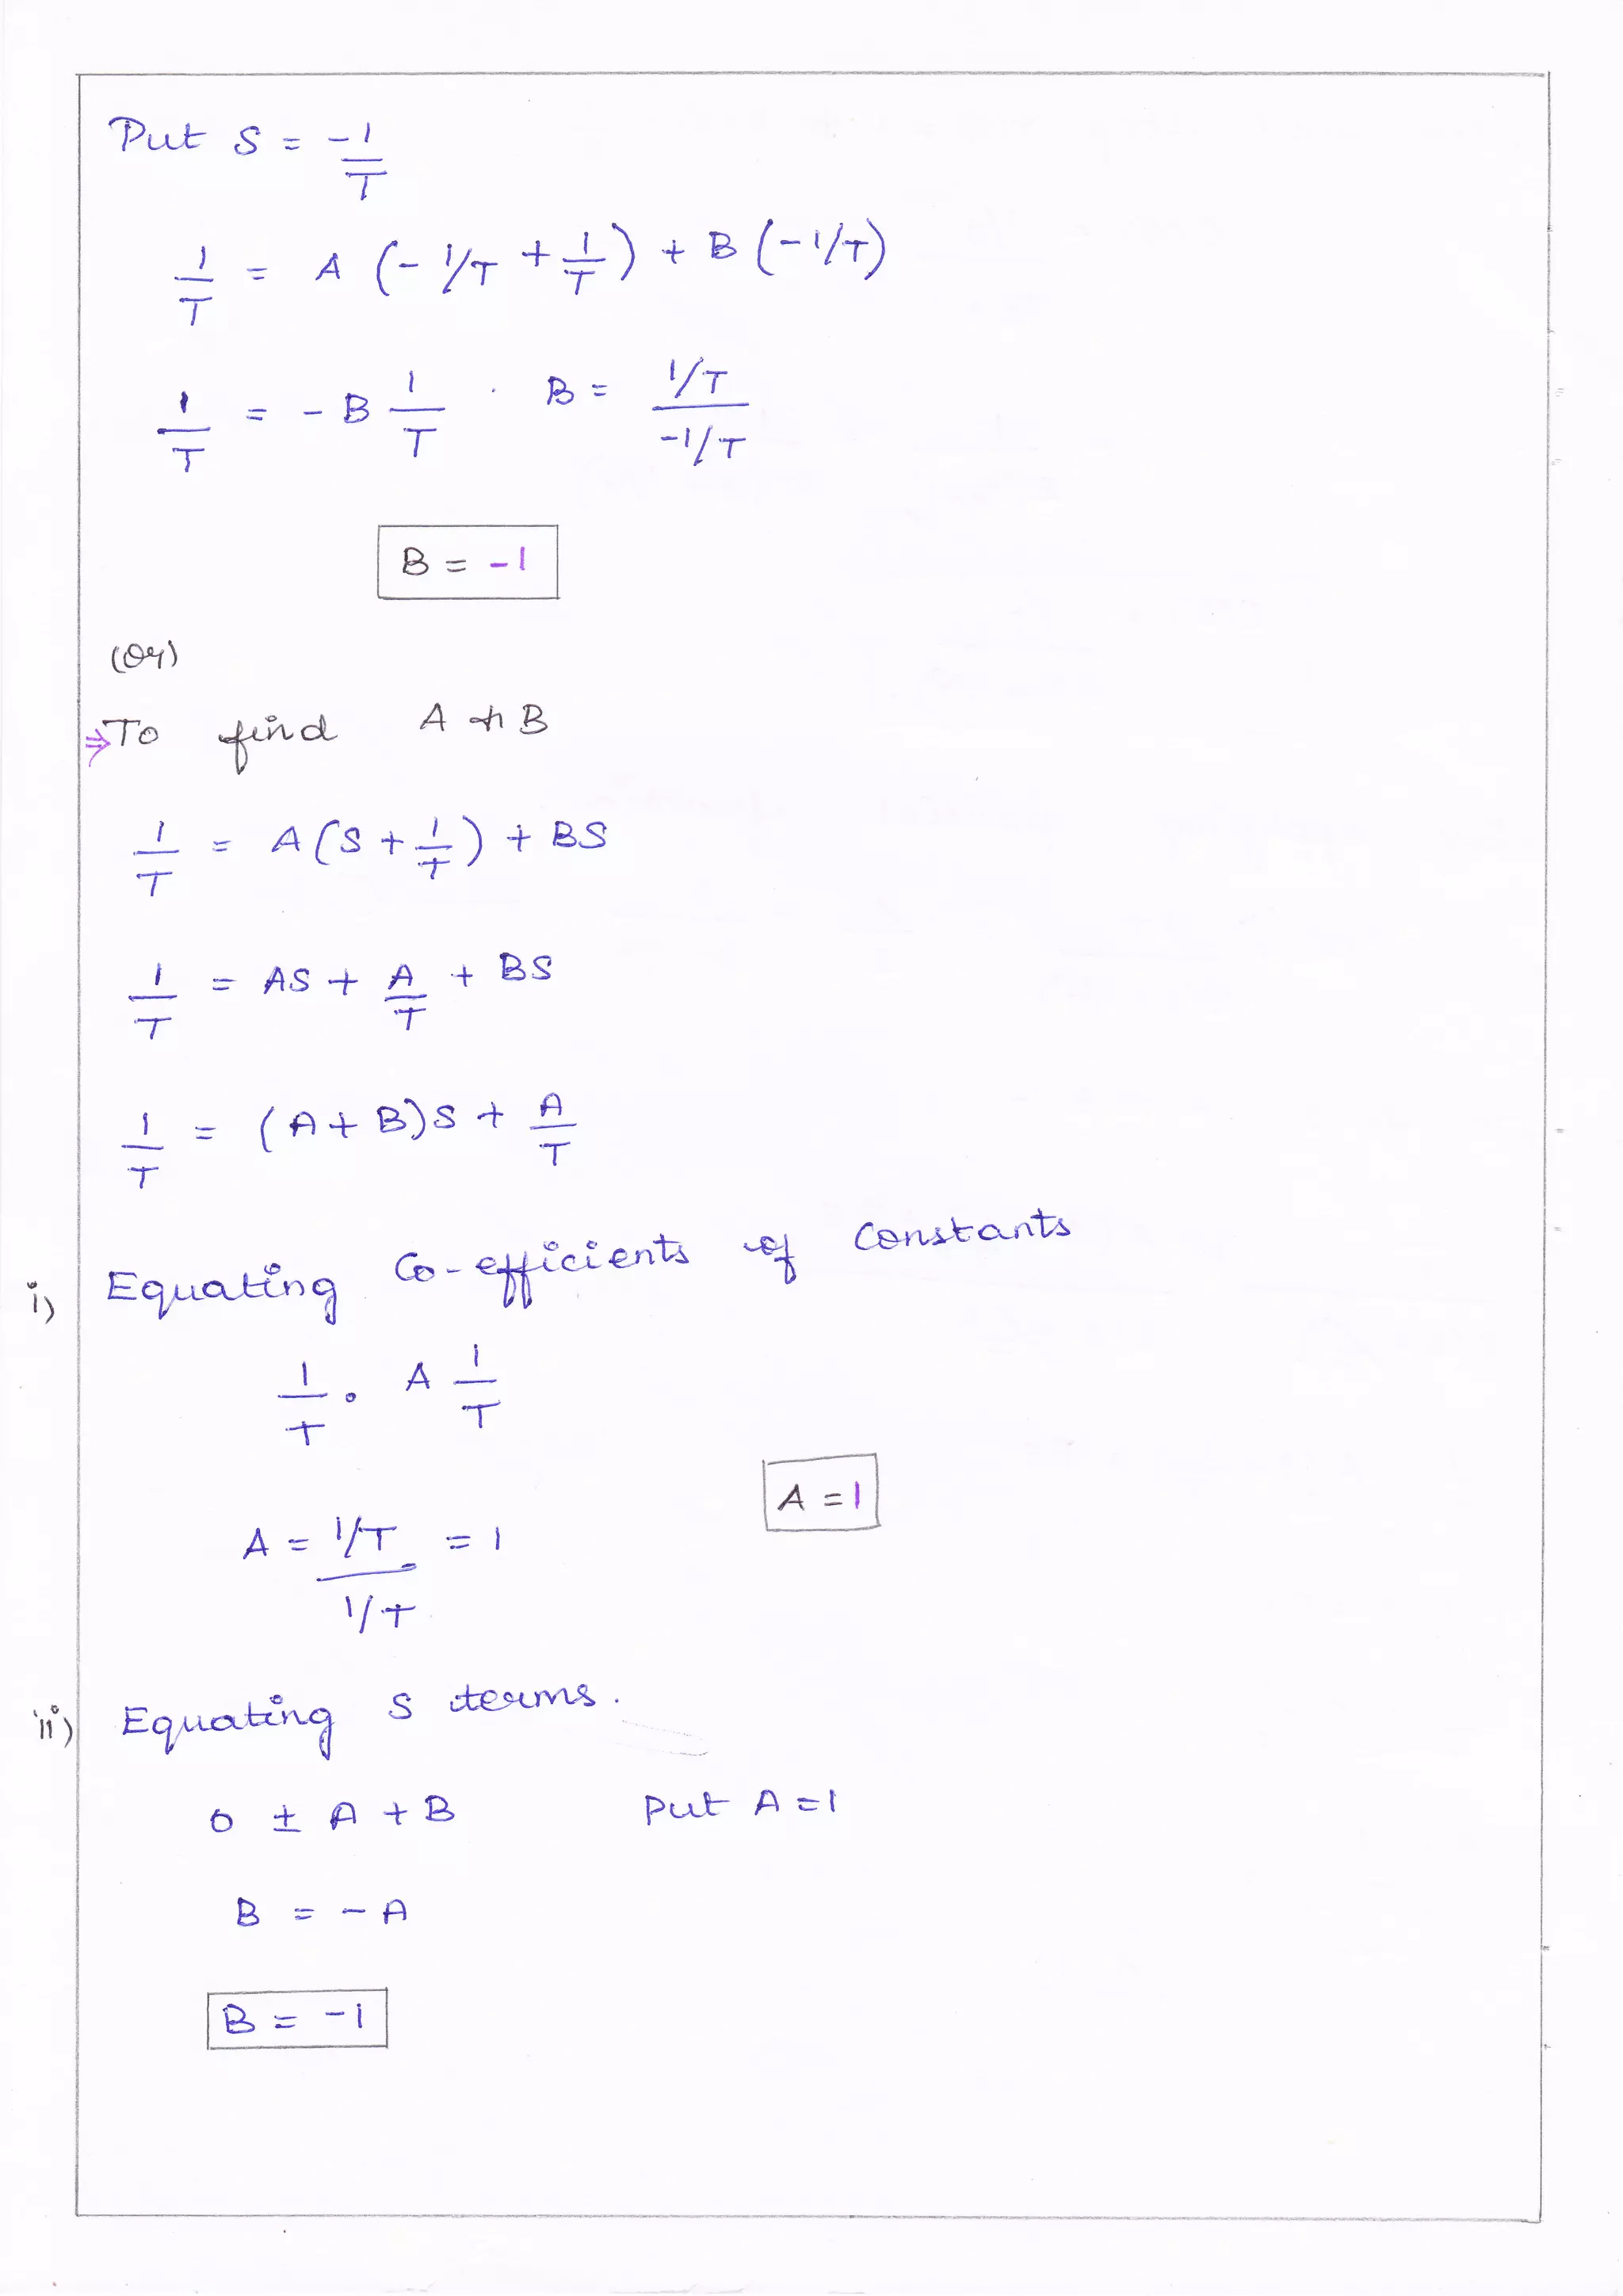 Put S = -1/T
1/T = A (-1/T + 1/T) + B (-1/T)
1/T = - B 1/T . B = 1/T / -1/T
B = -1
(Or)
⇒ To find A & B
1/T = A(S + 1/T) + BS
1/T = AS + A/T + BS
1/T = (A + B)S + A/T
i) Equating Co-efficients of Constants
1/T . A 1/T
A = 1/T / 1/T = 1
A = 1
ii) Equating S terms.
0 ± A + B Put A = 1
B = - A
B = -1